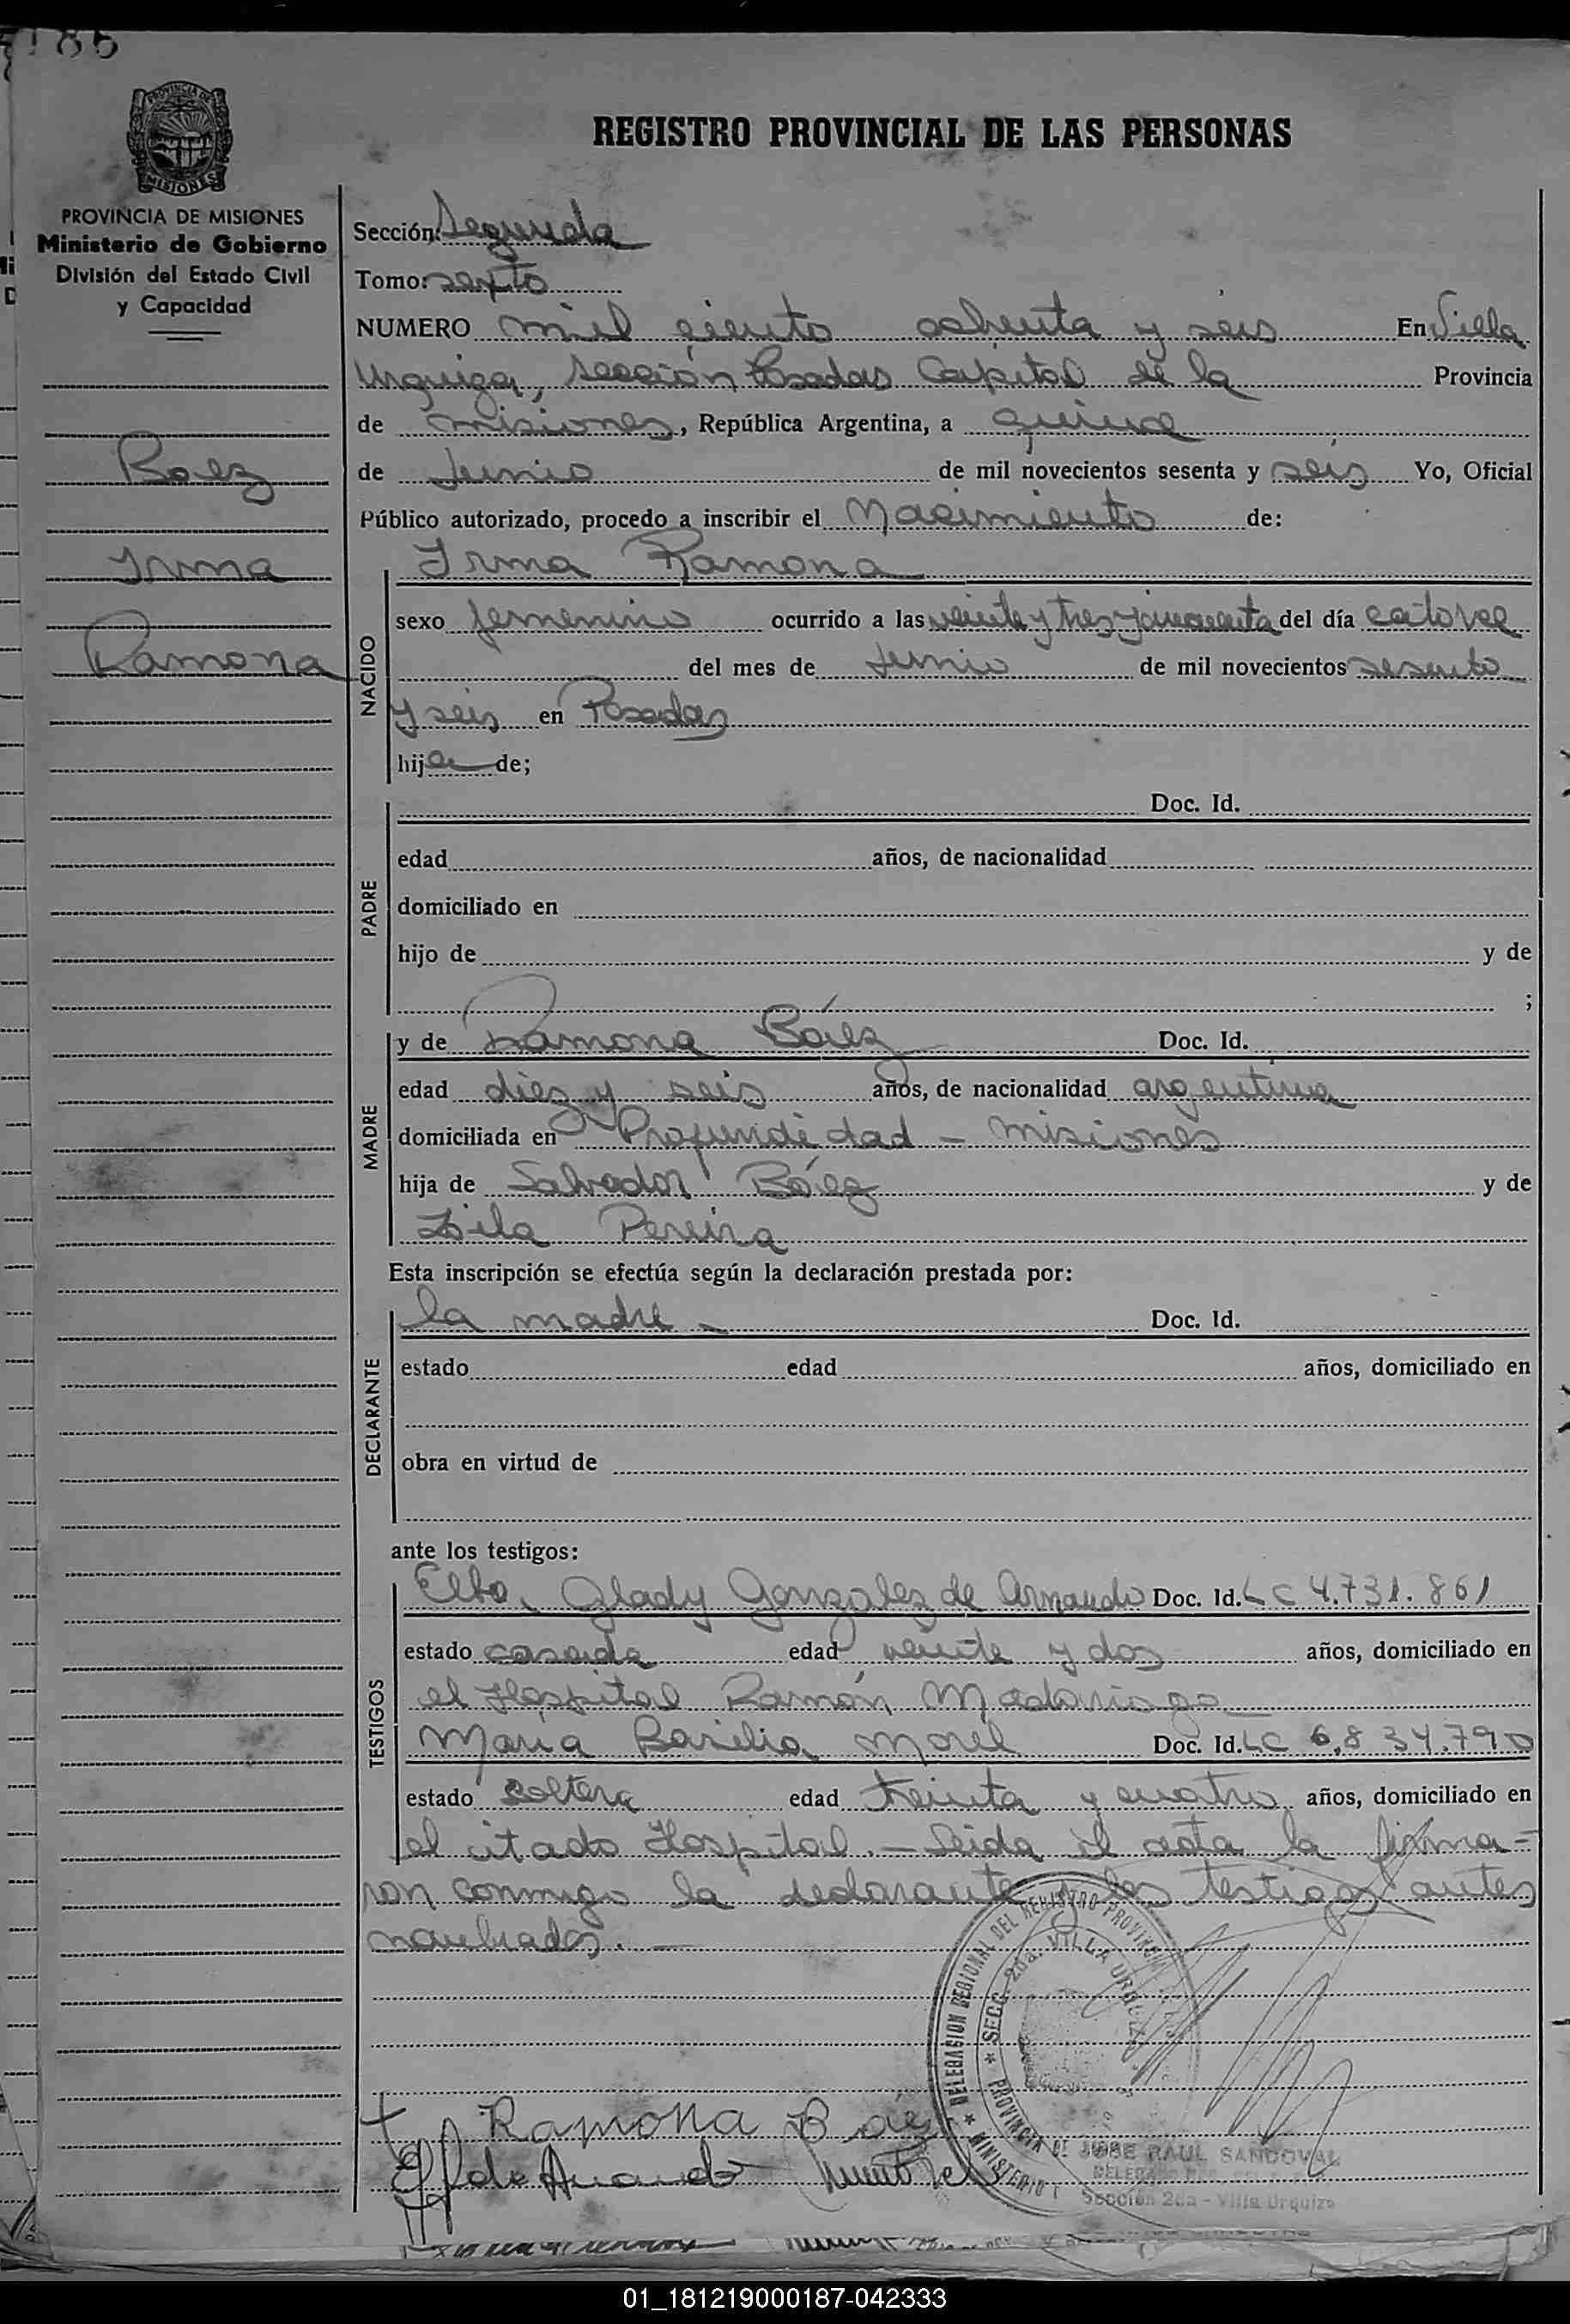 PROVINCIA DE MISIONES
Ministerio de Gobierno
División del Estado Civil
y Capacidad
Baez
Irma
Ramona
REGISTRO PROVINCIAL DE LAS PERSONAS
Sección: Segunda
Tomo: sexto
NUMERO mil ciento ochenta y seis En Villa
Urquiza, sección Posadas Capital de la Provincia
de Misiones, República Argentina, a quince
de Junio de mil novecientos sesenta y seis Yo, Oficial
Público autorizado, procedo a inscribir el Nacimiento de:
Irma Ramona
NACIDO
sexo femenino ocurrido a las veinte y tres y cincuenta del día catorce
del mes de Junio de mil novecientos sesenta
y seis en Posadas
hija de;
PADRE
Doc. Id.
edad años, de nacionalidad
domiciliado en
hijo de y de
;
MADRE
y de Ramona Báez Doc. Id.
edad diez y seis años, de nacionalidad argentina
domiciliada en Profundidad - Misiones
hija de Salvador Báez y de
Zila Pereira
Esta inscripción se efectúa según la declaración prestada por:
DECLARANTE
la madre - Doc. Id.
estado edad años, domiciliado en
obra en virtud de
ante los testigos:
TESTIGOS
Elba Glady Gonzalez de Arnando Doc. Id. LC 4.731.861
estado casada edad veinte y dos años, domiciliado en
el Hospital Ramón Madariaga
María Basilia Morel Doc. Id. LC 6.834.790
estado soltera edad treinta y cuatro años, domiciliado en
el citado Hospital. - Leida el acta la firma-
ron conmigo la declarante y los testigos antes
nombrados. -
DELEGACION REGIONAL DEL REGISTRO PROVINCIAL
SECC. 2da. VILLA URQUIZA
PROVINCIA DE
MINISTERIO
Ramona Báez
JOSE RAUL SANDOVAL
Sección 2da - Villa Urquiza
01_181219000187-042333